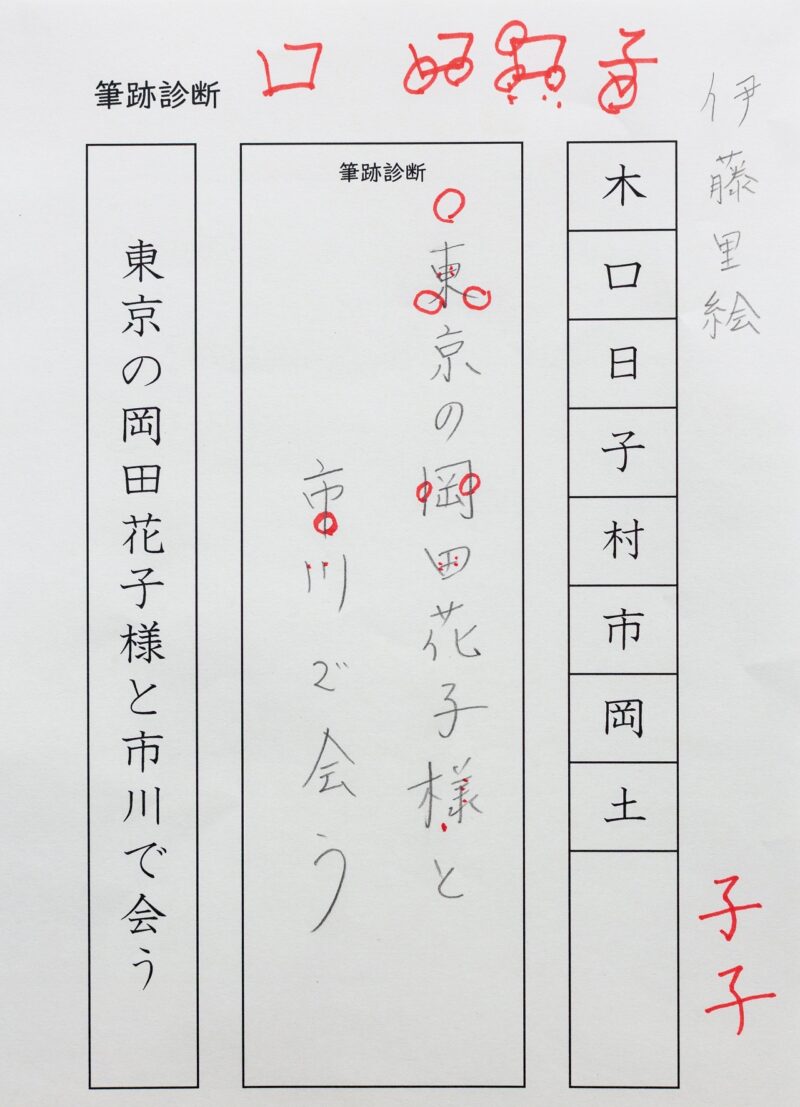 筆跡診断
口 如 類 子
伊藤里絵
木
口
日
子
村
市
岡
土
子
子
筆跡診断
東京の岡田花子様と
市川で会う
東京の岡田花子様と市川で会う